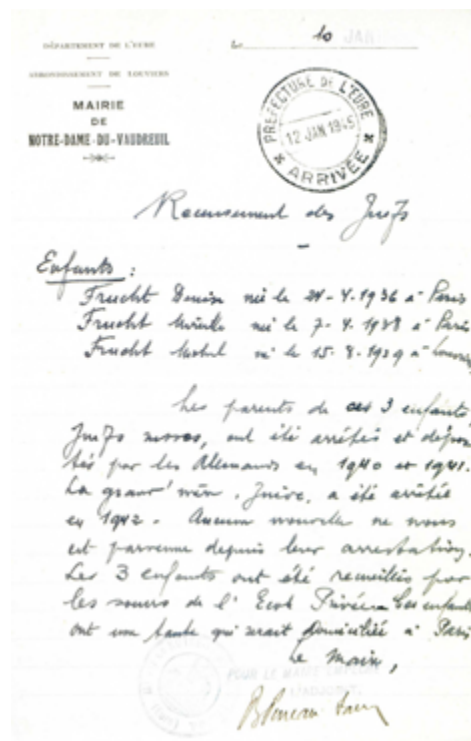 DÉPARTEMENT DE L'EURE
ARRONDISSEMENT DE LOUVIERS
MAIRIE
DE
NOTRE-DAME-DU-VAUDREUIL
10 JAN
PREFECTURE DE L'EURE
12 JAN 1945
ARRIVÉE
Recensement des Juifs
Enfants :
Frucht Denise née le 24-4-1936 à Paris
Frucht née le 7-4-1938 à Paris
Frucht né le 15-8-1939 à
Les parents de ces 3 enfants,
Juifs, ont été arrêtés et dépor
tés par les Allemands en 1940 et 1941.
La grand'mère, Juive, a été arrêtée
en 1942. Aucune nouvelle ne nous
est parvenue depuis leur arrestation.
Les 3 enfants ont été recueillis par
les soeurs de l'Ecole Privée. Les enfants
ont une tante qui serait domiciliée à Paris
Le Maire,
POUR LE MAIRE
L'ADJOINT